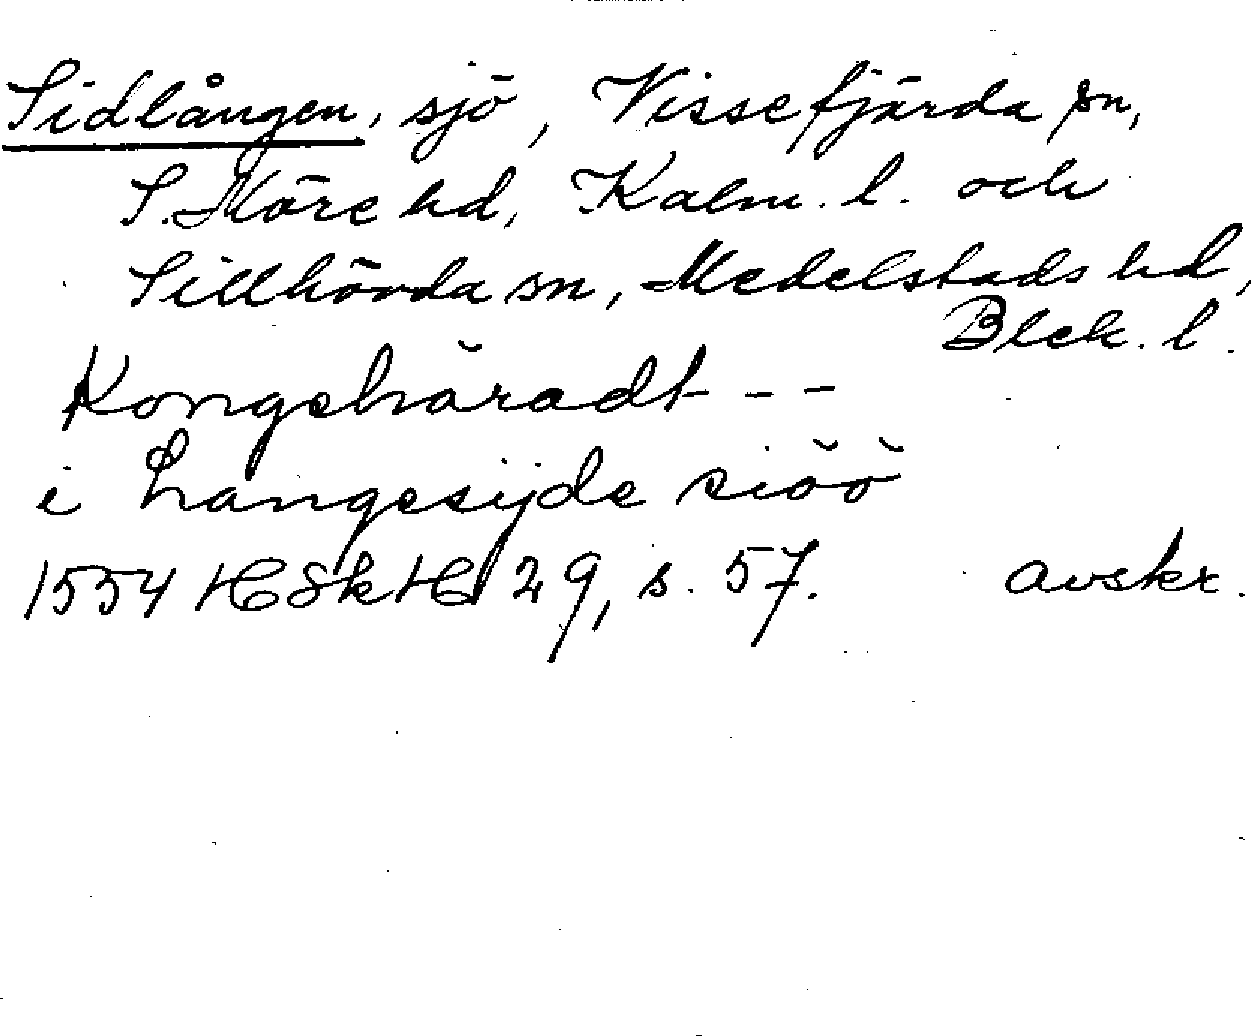 Sidlången, sjö, Vissefjärda sn,
S. Möre hd, Kalm. l. och
Sillhövda sn, Medelstads hd,
Blek. l.
Kongshäradt - -
i Langesijde siöö
1554 HSkH 29, s. 57. avskr.